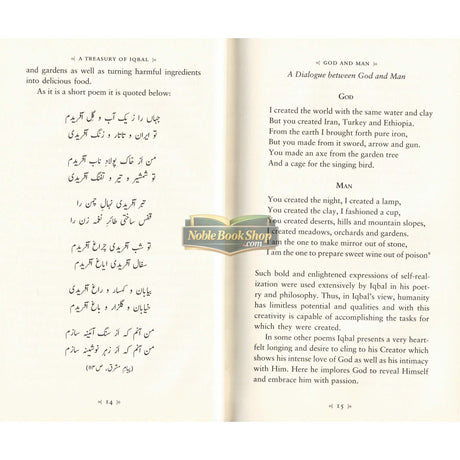 ⊰ A TREASURY OF IQBAL ⊱
and gardens as well as turning harmful ingredients
into delicious food.
As it is a short poem it is quoted below:
جہاں را ز یک آب و گل آفریدم
تو ایران و تاتار و زنگ آفریدی
من از خاک پولادِ ناب آفریدم
تو شمشیر و تیر و تفنگ آفریدی
تبر آفریدی نہالِ چمن را
قفس ساختی طائرِ نغمہ زن را
تو شب آفریدی چراغ آفریدم
سفال آفریدی ایاغ آفریدم
بیابان و کہسار و راغ آفریدی
خیابان و گلزار و باغ آفریدم
من آنم کہ از سنگ آئینہ سازم
من آنم کہ از زہر نوشینہ سازم
(پیامِ مشرق، ص
⊰ 14 ⊱
⊰ GOD AND MAN ⊱
A Dialogue between God and Man
GOD
I created the world with the same water and clay
But you created Iran, Turkey and Ethiopia.
From the earth I brought forth pure iron,
But you made from it sword, arrow and gun.
You made an axe from the garden tree
And a cage for the singing bird.
MAN
You created the night, I created a lamp,
You created the clay, I fashioned a cup,
You created deserts, hills and mountain slopes,
I created meadows, orchards and gardens.
I am the one to make mirror out of stone,
I am the one to prepare sweet wine out of poison"
Such bold and enlightened expressions of self-real-
ization were used extensively by Iqbal in his poet-
ry and philosophy. Thus, in Iqbal's view, humanity
has limitless possibilities of creation and with this
creativity is capable of accomplishing the tasks for
which they were created.
In some other poems Iqbal presents a very heart-
felt longing and desire to cling to his Creator which
shows his intense love of God as well as his intimacy
with Him. Here he implores God to reveal Himself
and embrace him with passion.
⊰ 15 ⊱
Noble Book Shop
.com